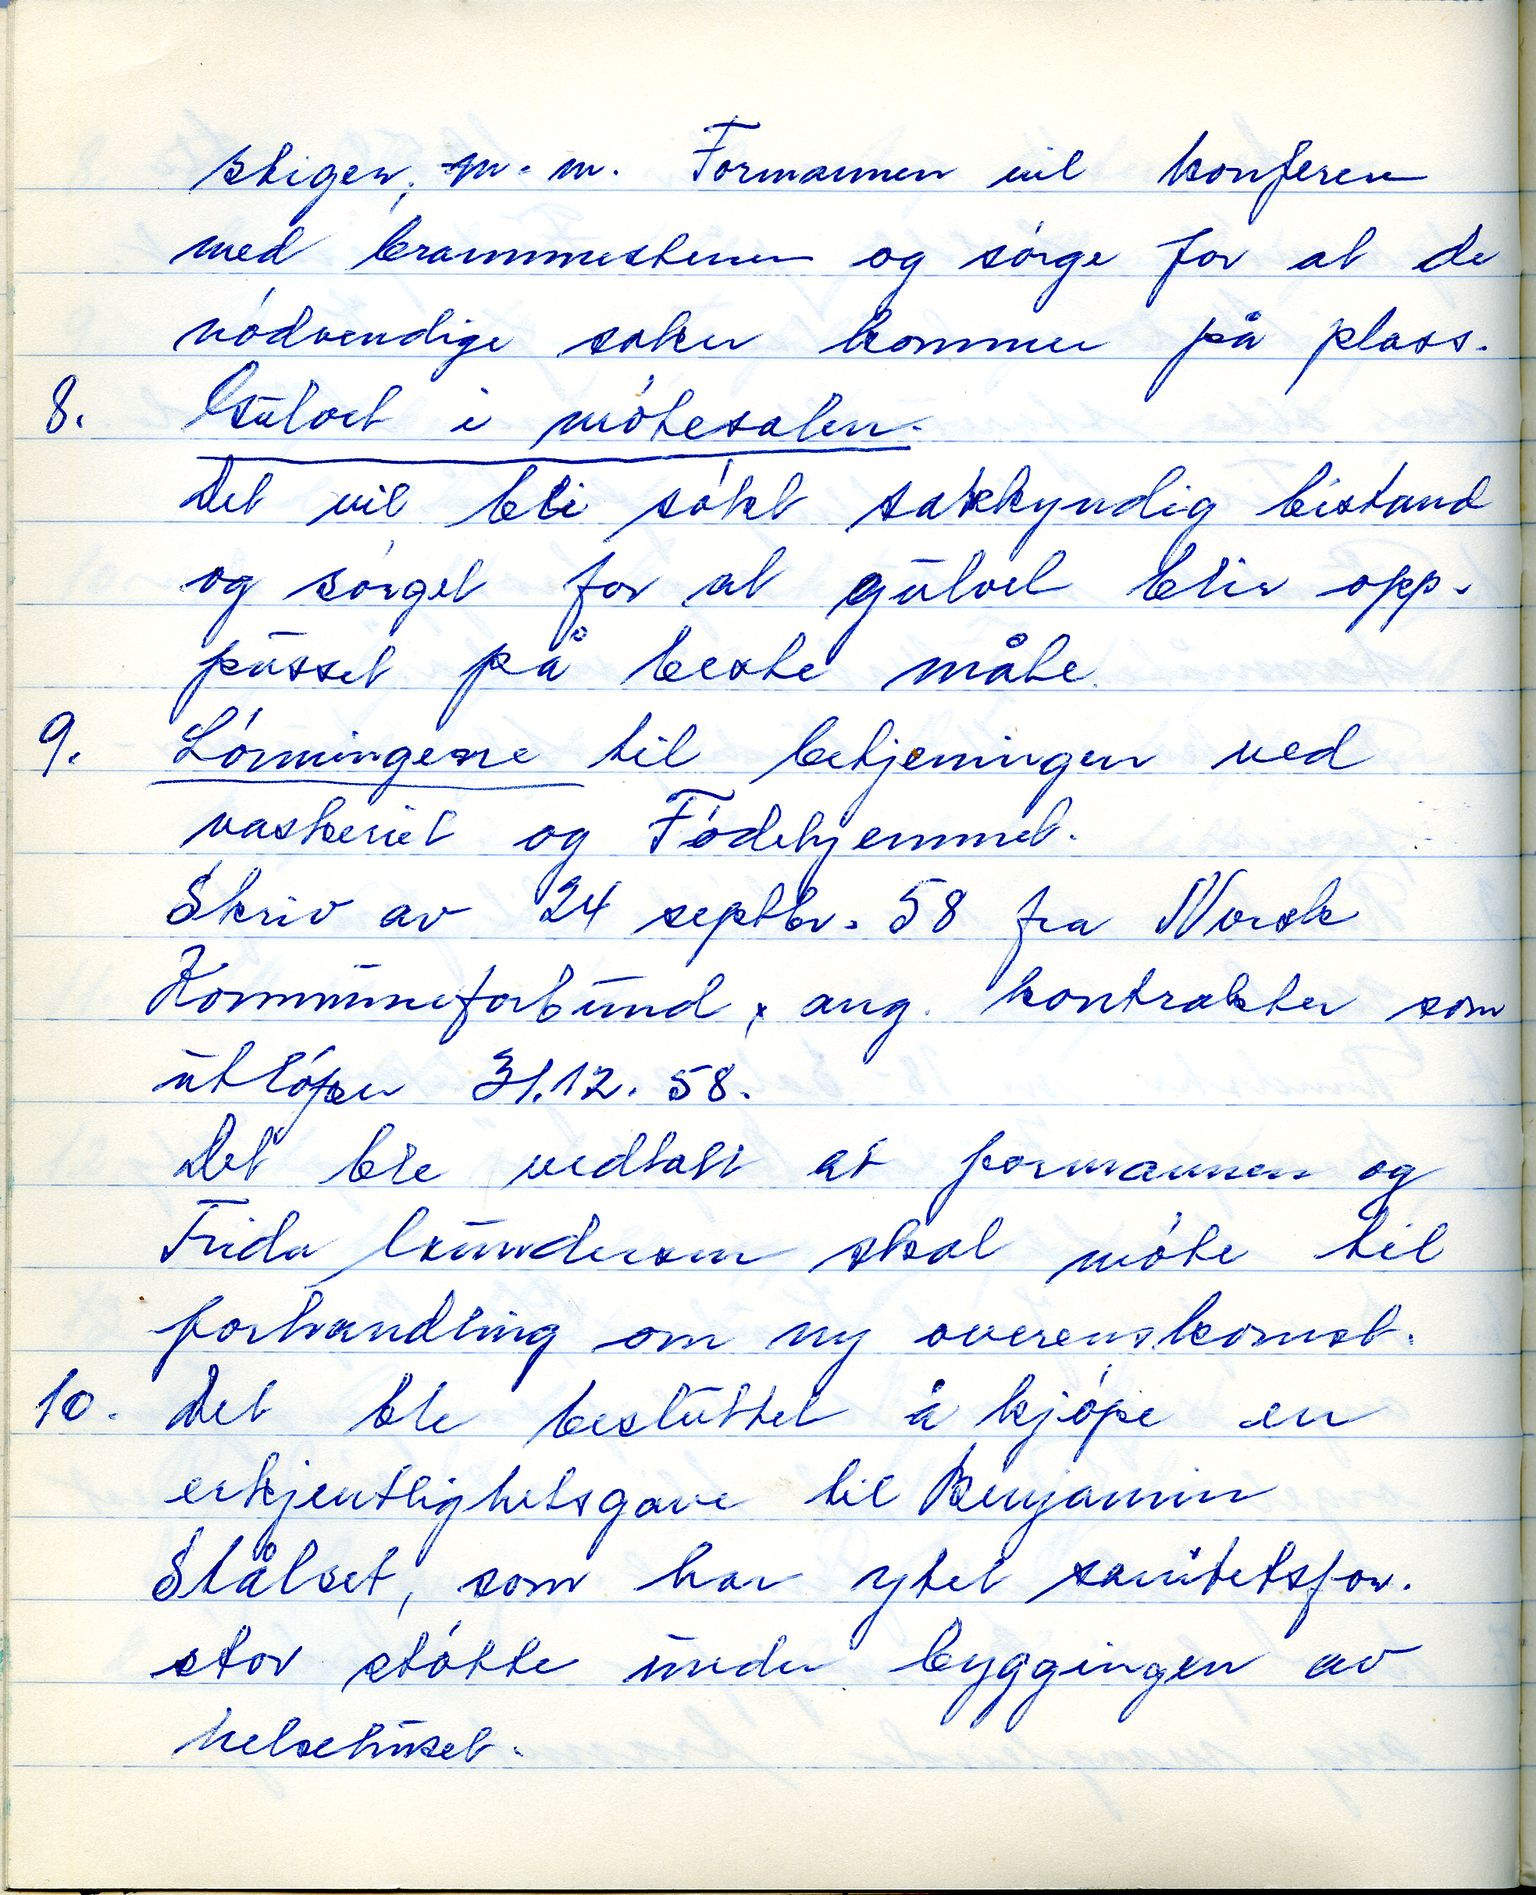 stigen, m. m. Formannen vil konferere
med brannmesteren og sørge for at de
nødvendige saker kommer på plass.
8. Gulvet i møtesalen.
Det vil bli søkt sakkyndig bistand
og sørget for at gulvet blir opp-
pusset på beste måte.
9. Lønningene til betjeningen ved
vaskeriet og Fødehjemmet.
Skriv av 24 septbr. 58 fra Norsk
Kommuneforbund, ang. kontrakter som
utløper 31.12.58.
Det ble vedtatt at formannen og
Frida Gundersen skal møte til
forhandling om ny overenskomst.
10. Det ble besluttet å kjøpe en
erkjentlighetsgave til Benjamin
Stålset, som har ytet sanitetsfor.
stor støtte under byggingen av
helsehuset.